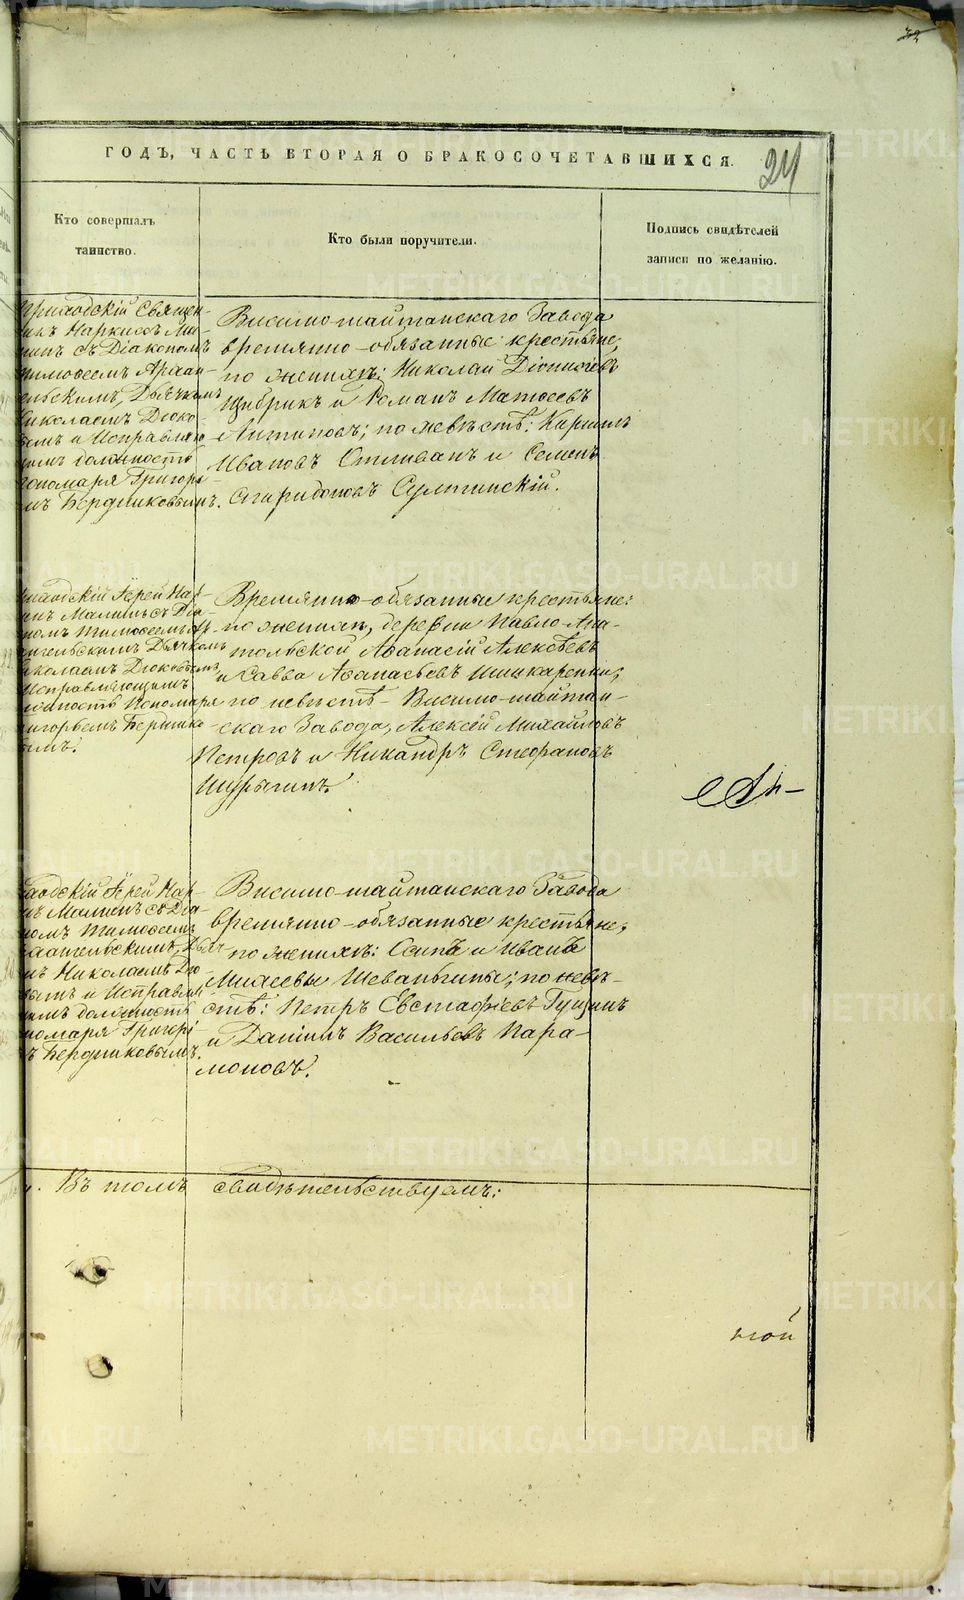 24
ГОДЪ, ЧАСТЬ ВТОРАЯ О БРАКОСОЧЕТАВШИХСЯ.
Кто совершалъ
таинство.
Кто были поручители.
Подпись свидѣтелей
записи по желанію.
приходскій Священ-
никъ Наркиссъ Ма-
минъ съ Діакономъ
Тимоѳеемъ Архан-
гельскимъ, Дьячкомъ
Николаемъ Дюко-
вымъ и Исправляю-
щимъ должность
пономаря Григорі-
емъ Бердниковымъ.
Висимо-шайтанскаго Завода
времянно-обязанные крестьяне,
по женихѣ: Николай Діонисіевъ
Щибрикъ и Романъ Матѳеевъ
Антиповъ; по невѣстѣ: Кириллъ
Ивановъ Стливанъ и Семенъ
Спиридоновъ Султинскій.
приходскій Іерей Нар-
Маминъ съ Діа-
кономъ Тимоѳеемъ Ар-
хангельскимъ Дьячкомъ
Николаемъ Дюковымъ,
Исправляющимъ
должность Пономаря
Григорьемъ Бердыко-
вымъ.
Времянно-обязанные крестьяне:
по женихѣ, деревни Павло-Ана-
тольской Аѳанасій Алексѣевъ
и Савва Аѳанасьевъ Шишкаренки;
по невѣстѣ - Висимо-шайтан-
скаго Завода, Алексій Михайловъ
Петровъ и Никандръ Стефановъ
Шурыгинъ.
приходскій Іерей Нар-
Маминъ съ Діа-
кономъ Тимоѳеемъ
Архангельскимъ, Дьяч-
Николаемъ Дю-
ковымъ и Исправля-
щимъ должность
пономаря Григорі-
Бердниковымъ.
Висимо-шайтанскаго Завода
времянно-обязанные крестьяне,
по женихѣ: Осипъ и Иванъ
Моисеевы Шеваньгины; по невѣ-
стѣ: Петръ Евстафіевъ Гущинъ
и Даніилъ Васильевъ Пара-
моновъ.
Въ томъ свидѣтельствуемъ:
METRIKI.GASO-URAL.RU